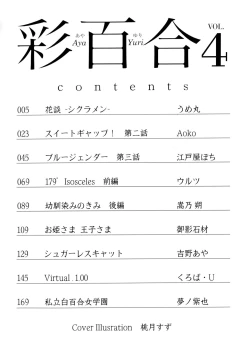 あや ゆり
彩百合 VOL. 4
Aya Yuri
contents
005 花談 -シクラメン- うめ丸
023 スイートギャップ！ 第二話 Aoko
045 ブルージェンダー 第三話 江戸屋ぽち
069 179° Isosceles 前編 ウルツ
089 幼馴染みのきみ 後編 高乃 朔
109 お姫さま 王子さま 御影石材
129 シュガーレスキャット 吉野あや
145 Virtual .1.00 くろば・U
169 私立白百合女学園 夢ノ紫也
Cover Illusration 桃月すず